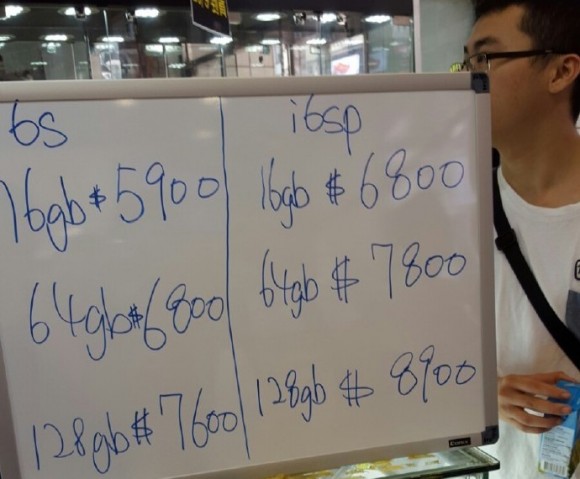 6s
16gb $ 5900
64gb $ 6800
128gb $ 7600
i6sp
16gb $ 6800
64gb $ 7800
128gb $ 8900